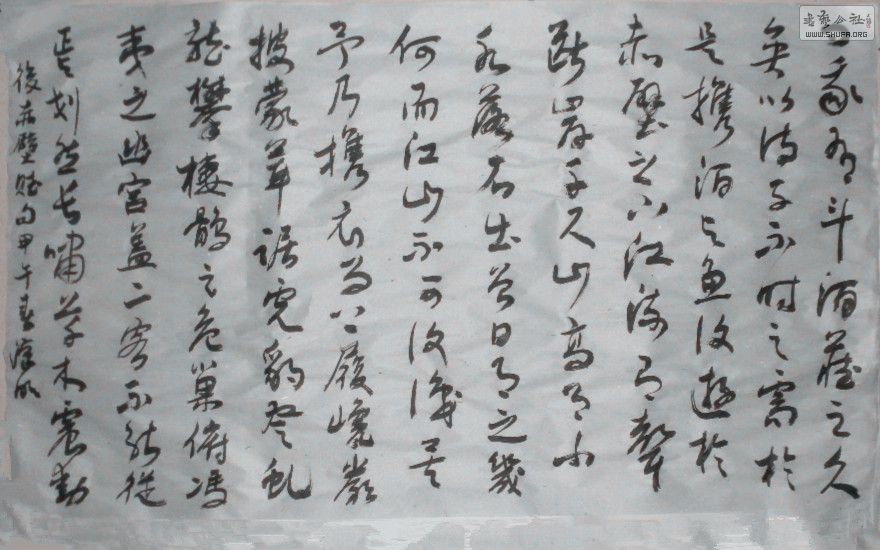 我有斗酒藏之久
矣以待子不時之需於
是攜酒與魚復遊於
赤壁之下江流有聲
斷岸千尺山高月小
水落石出曾日月之幾
何而江山不可復識矣
予乃攜衣而上履巉巖
披蒙茸踞虎豹登虬
龍攀棲鶻之危巢俯馮
夷之幽宮蓋二客不能從
焉划然長嘯草木震動
後赤壁賦句甲午春
書法公社
WWW.SHUFA.ORG